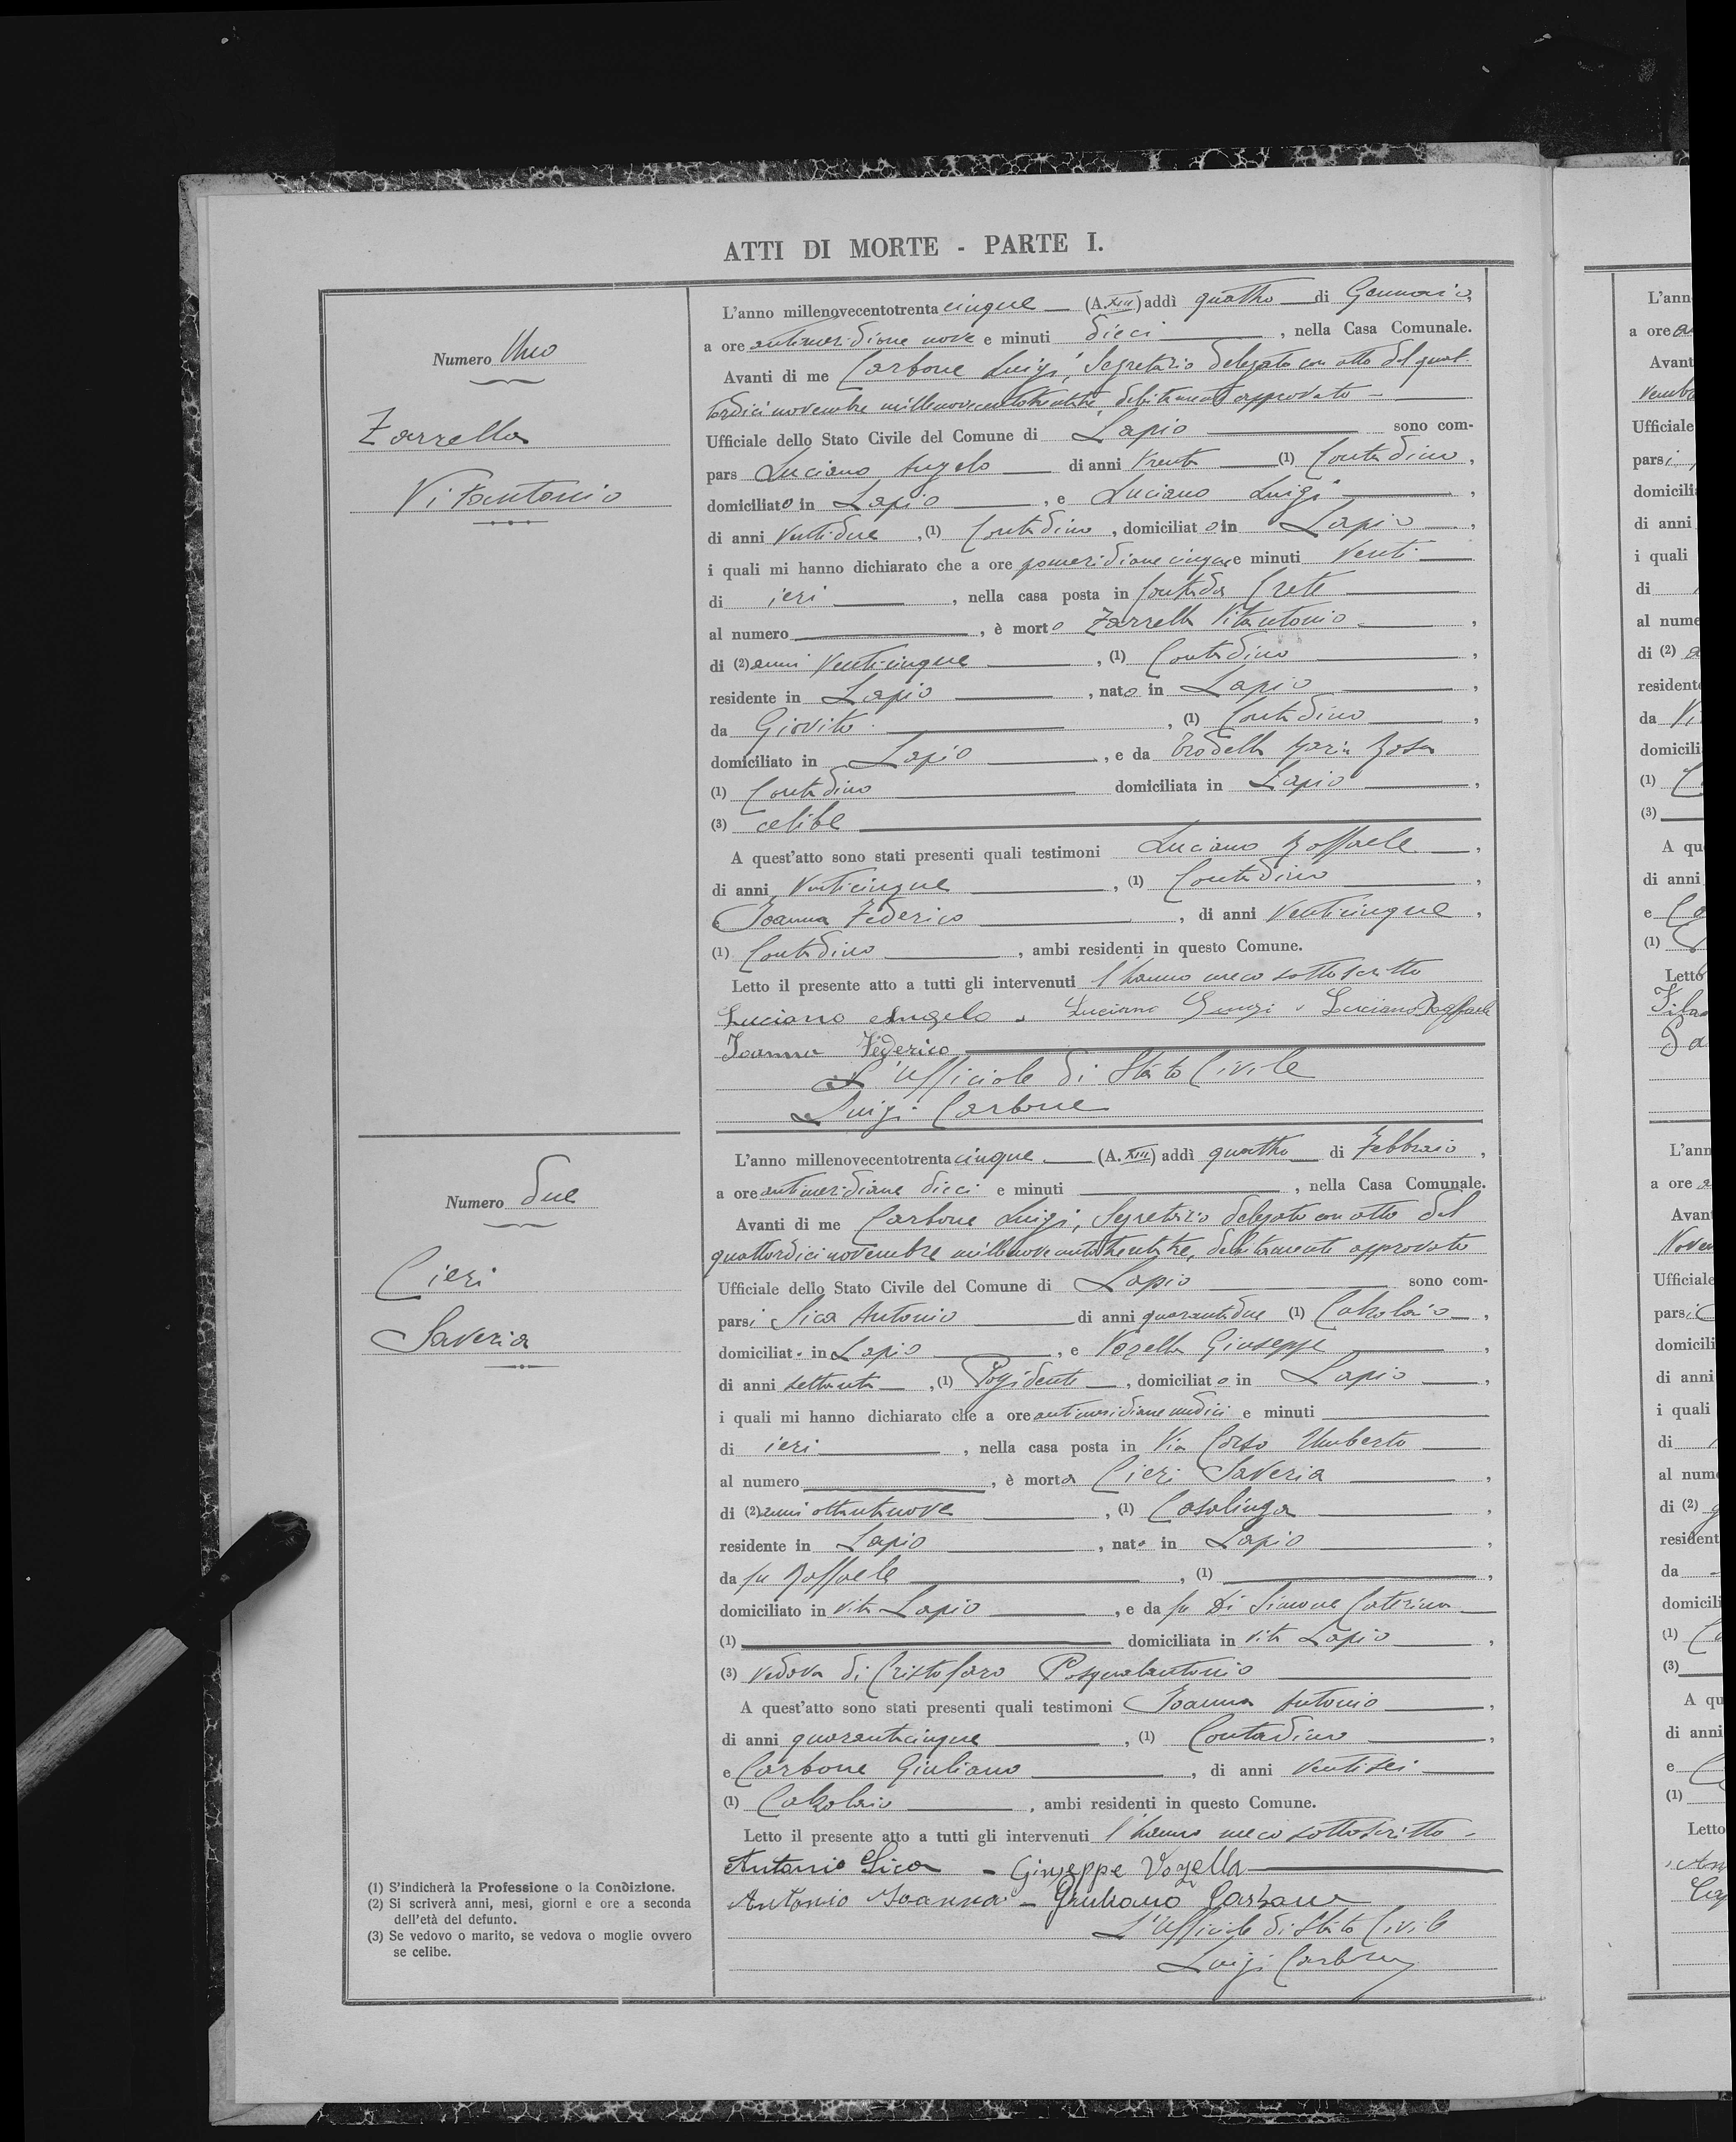 ATTI DI MORTE - PARTE I.
Numero Uno
Zarrella
Vitantonio
L'anno millenovecentotrenta cinque (A. XIII) addì quattro di Gennaio,
a ore antimeridiane nove e minuti dieci, nella Casa Comunale.
Avanti di me Carbone Luigi, Segretario delegato con atto del quat-
tordici novembre millenovecentotrentatre, debitamente approvato
Ufficiale dello Stato Civile del Comune di Lapio sono com-
pars Luciano Angelo di anni trenta (1) Contadino,
domiciliato in Lapio, e Luciano Luigi,
di anni ventidue, (1) Contadino, domiciliato in Lapio,
i quali mi hanno dichiarato che a ore pomeridiane cinque e minuti venti
di ieri, nella casa posta in Contrada Crete
al numero, è morto Zarrella Vitantonio,
di (2) anni venticinque, (1) Contadino,
residente in Lapio, nato in Lapio,
da Giovito, (1) Contadino,
domiciliato in Lapio, e da Trodella Maria Rosa
(1) Contadina domiciliata in Lapio,
(3) celibe
A quest'atto sono stati presenti quali testimoni Luciano Raffaele,
di anni venticinque, (1) Contadino,
e Ioanna Federico, di anni venticinque,
(1) Contadino, ambi residenti in questo Comune.
Letto il presente atto a tutti gli intervenuti l'hanno meco sottoscritto
Luciano Angelo Luciano Luigi Luciano Raffaele
Ioanna Federico
L'Ufficiale di Stato Civile
Luigi Carbone
Numero due
Cieri
Saveria
L'anno millenovecentotrenta cinque (A. XIII) addì quattro di Febbraio,
a ore antimeridiane dieci e minuti, nella Casa Comunale.
Avanti di me Carbone Luigi, Segretario delegato con atto del
quattordici novembre millenovecentotrentatre, debitamente approvato
Ufficiale dello Stato Civile del Comune di Lapio sono com-
parsi Sica Antonio di anni quarantadue (1) Calzolaio,
domiciliato in Lapio, e Vozella Giuseppe,
di anni settanta, (1) Possidente, domiciliato in Lapio,
i quali mi hanno dichiarato che a ore antimeridiane undici e minuti
di ieri, nella casa posta in Via Corso Umberto
al numero, è morta Cieri Saveria,
di (2) anni ottantanove, (1) Casalinga,
residente in Lapio, nata in Lapio,
da fu Raffaele, (1),
domiciliato in vita Lapio, e da fu Di Simone Caterina
(1) domiciliata in vita Lapio,
(3) vedova di Cristofaro Pasqualantonio
A quest'atto sono stati presenti quali testimoni Ioanna Antonio,
di anni quarantacinque, (1) Contadino,
e Carbone Giuliano, di anni ventisei
(1) Calzolaio, ambi residenti in questo Comune.
Letto il presente atto a tutti gli intervenuti l'hanno meco sottoscritto
Antonio Sica - Giuseppe Vozella
Antonio Ioanna - Giuliano Carbone
L'Ufficiale di Stato Civile
Luigi Carbone
(1) S'indicherà la Professione o la Condizione.
(2) Si scriverà anni, mesi, giorni e ore a seconda
dell'età del defunto.
(3) Se vedovo o marito, se vedova o moglie ovvero
se celibe.
L'ann
a ore
Avant
Ufficiale
pars
domicili
di anni
i quali
di
al nume
di (2)
residente
da
domicili
(1)
(3)
A qu
di anni
e
(1)
Letto
L'ann
a ore
Avan
Ufficiale
pars
domicili
di anni
i quali
di
al num
di (2)
resident
da
domicili
(1)
(3)
A qu
di anni
e
(1)
Letto